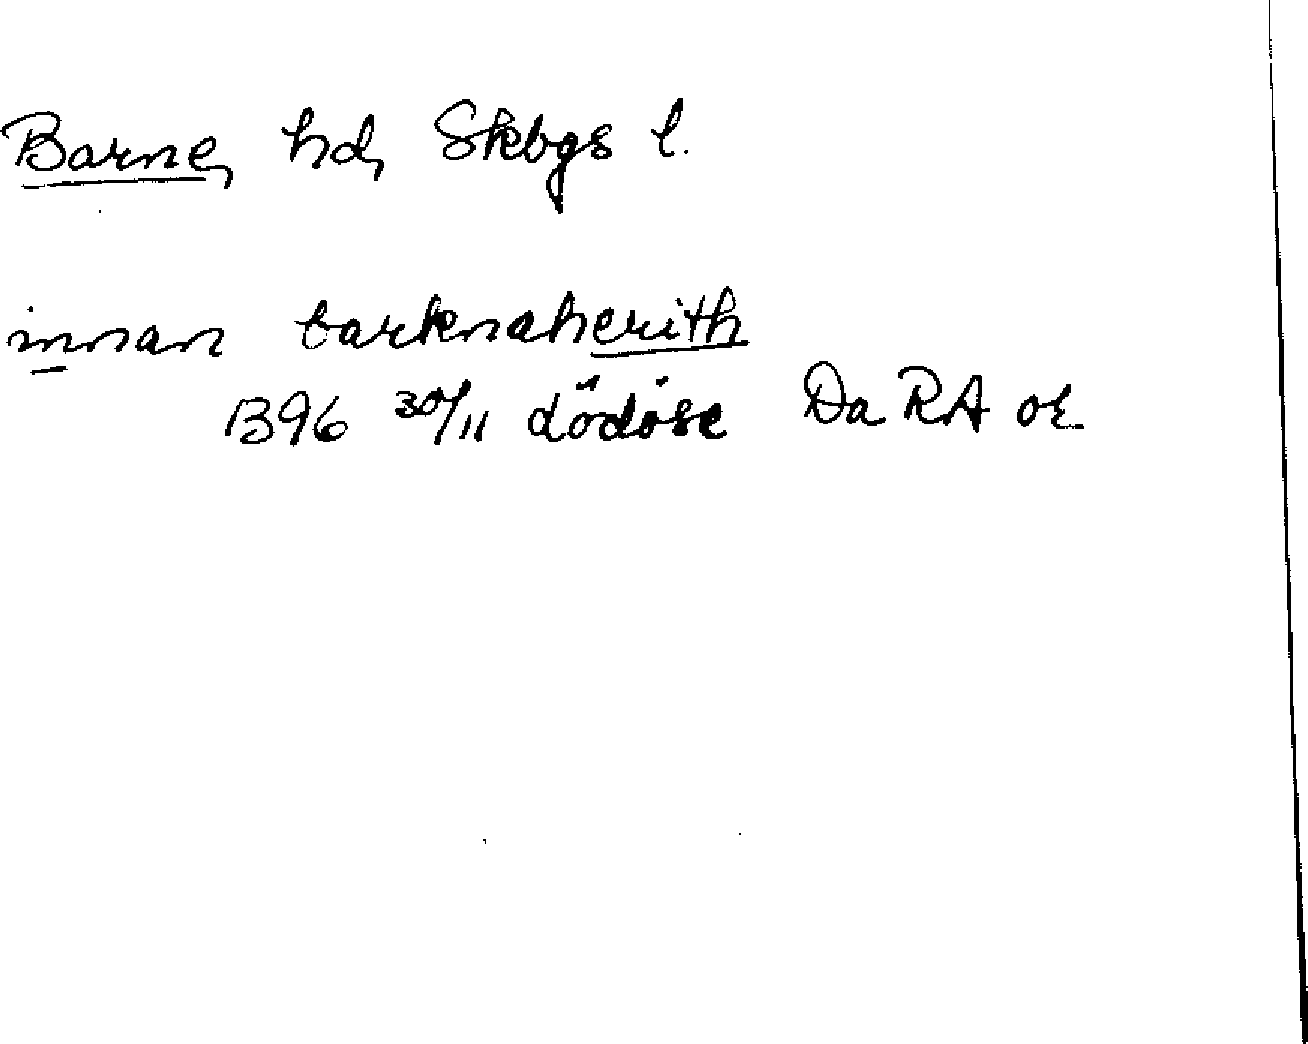 Barne, hd, Skbgs l.
innan barknaherith
1396 30/11 Lödöse Da RA or.